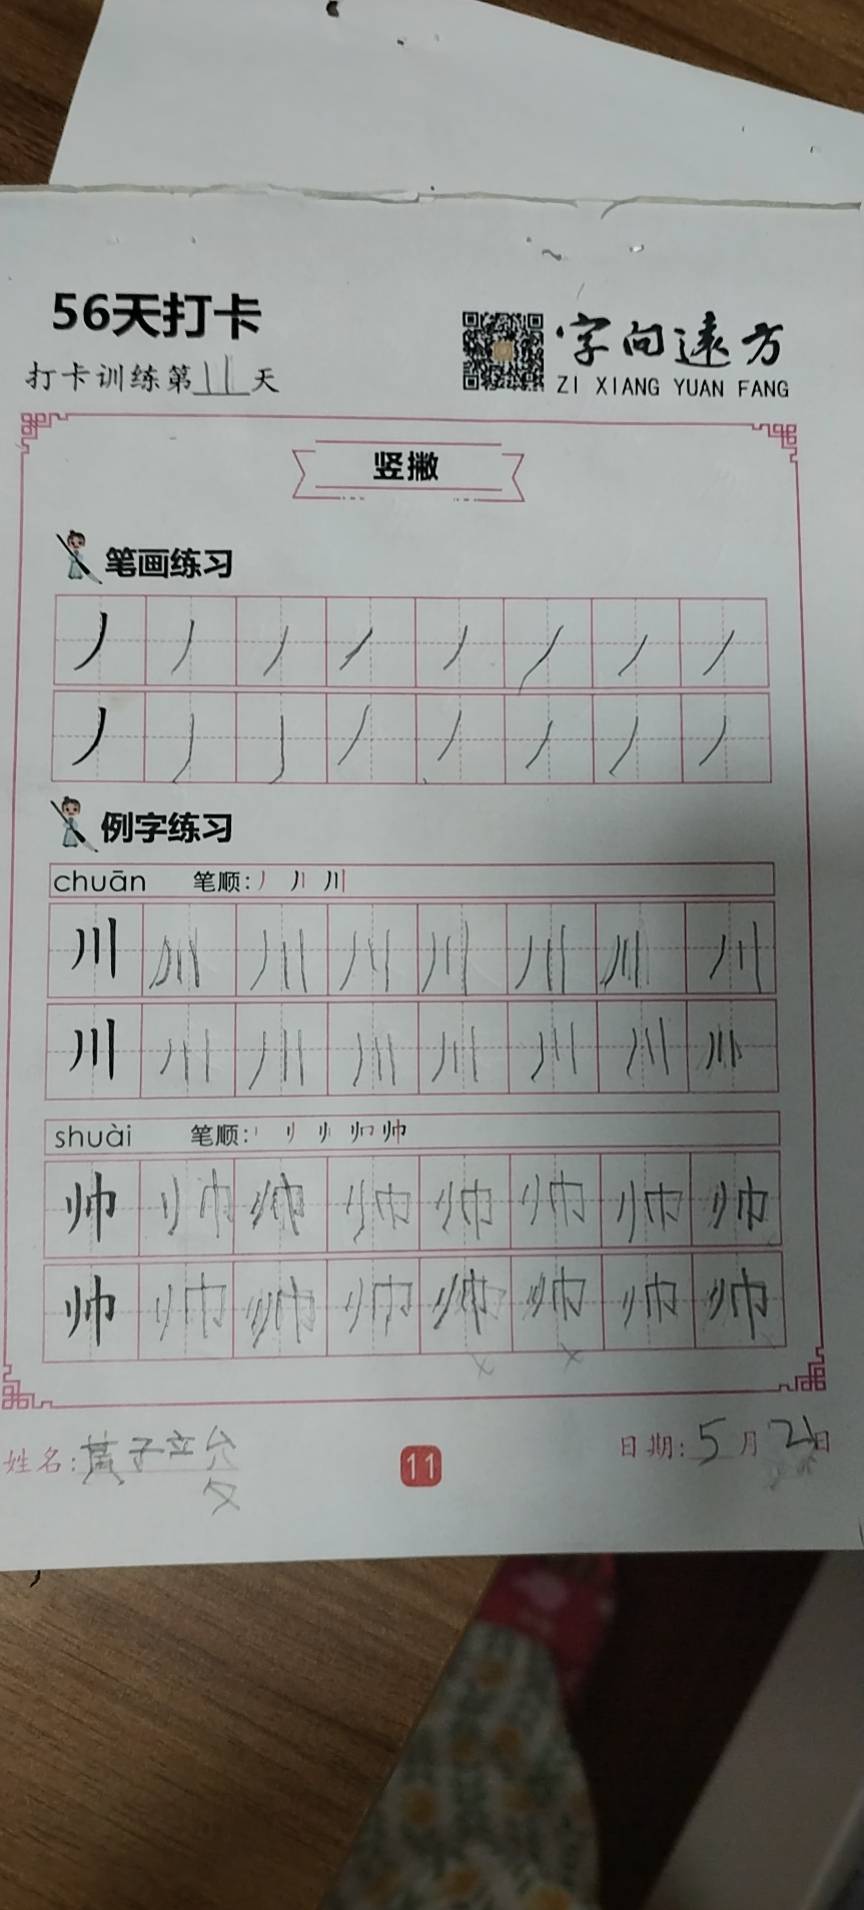 56天打卡
打卡训练第11天
字向遠方
ZI XIANG YUAN FANG
竖撇
笔画练习
丿
丿
例字练习
chuān 笔顺: 丿 丿丨 川
川 川 川 川 川 川 川 川
川 川 川 川 川 川 川 川
shuài 笔顺: 帅
帅 帅 帅 帅 帅 帅 帅 帅
帅 帅 帅 帅 帅 帅 帅 帅
姓名: 黄子
11
日期: 5月21日